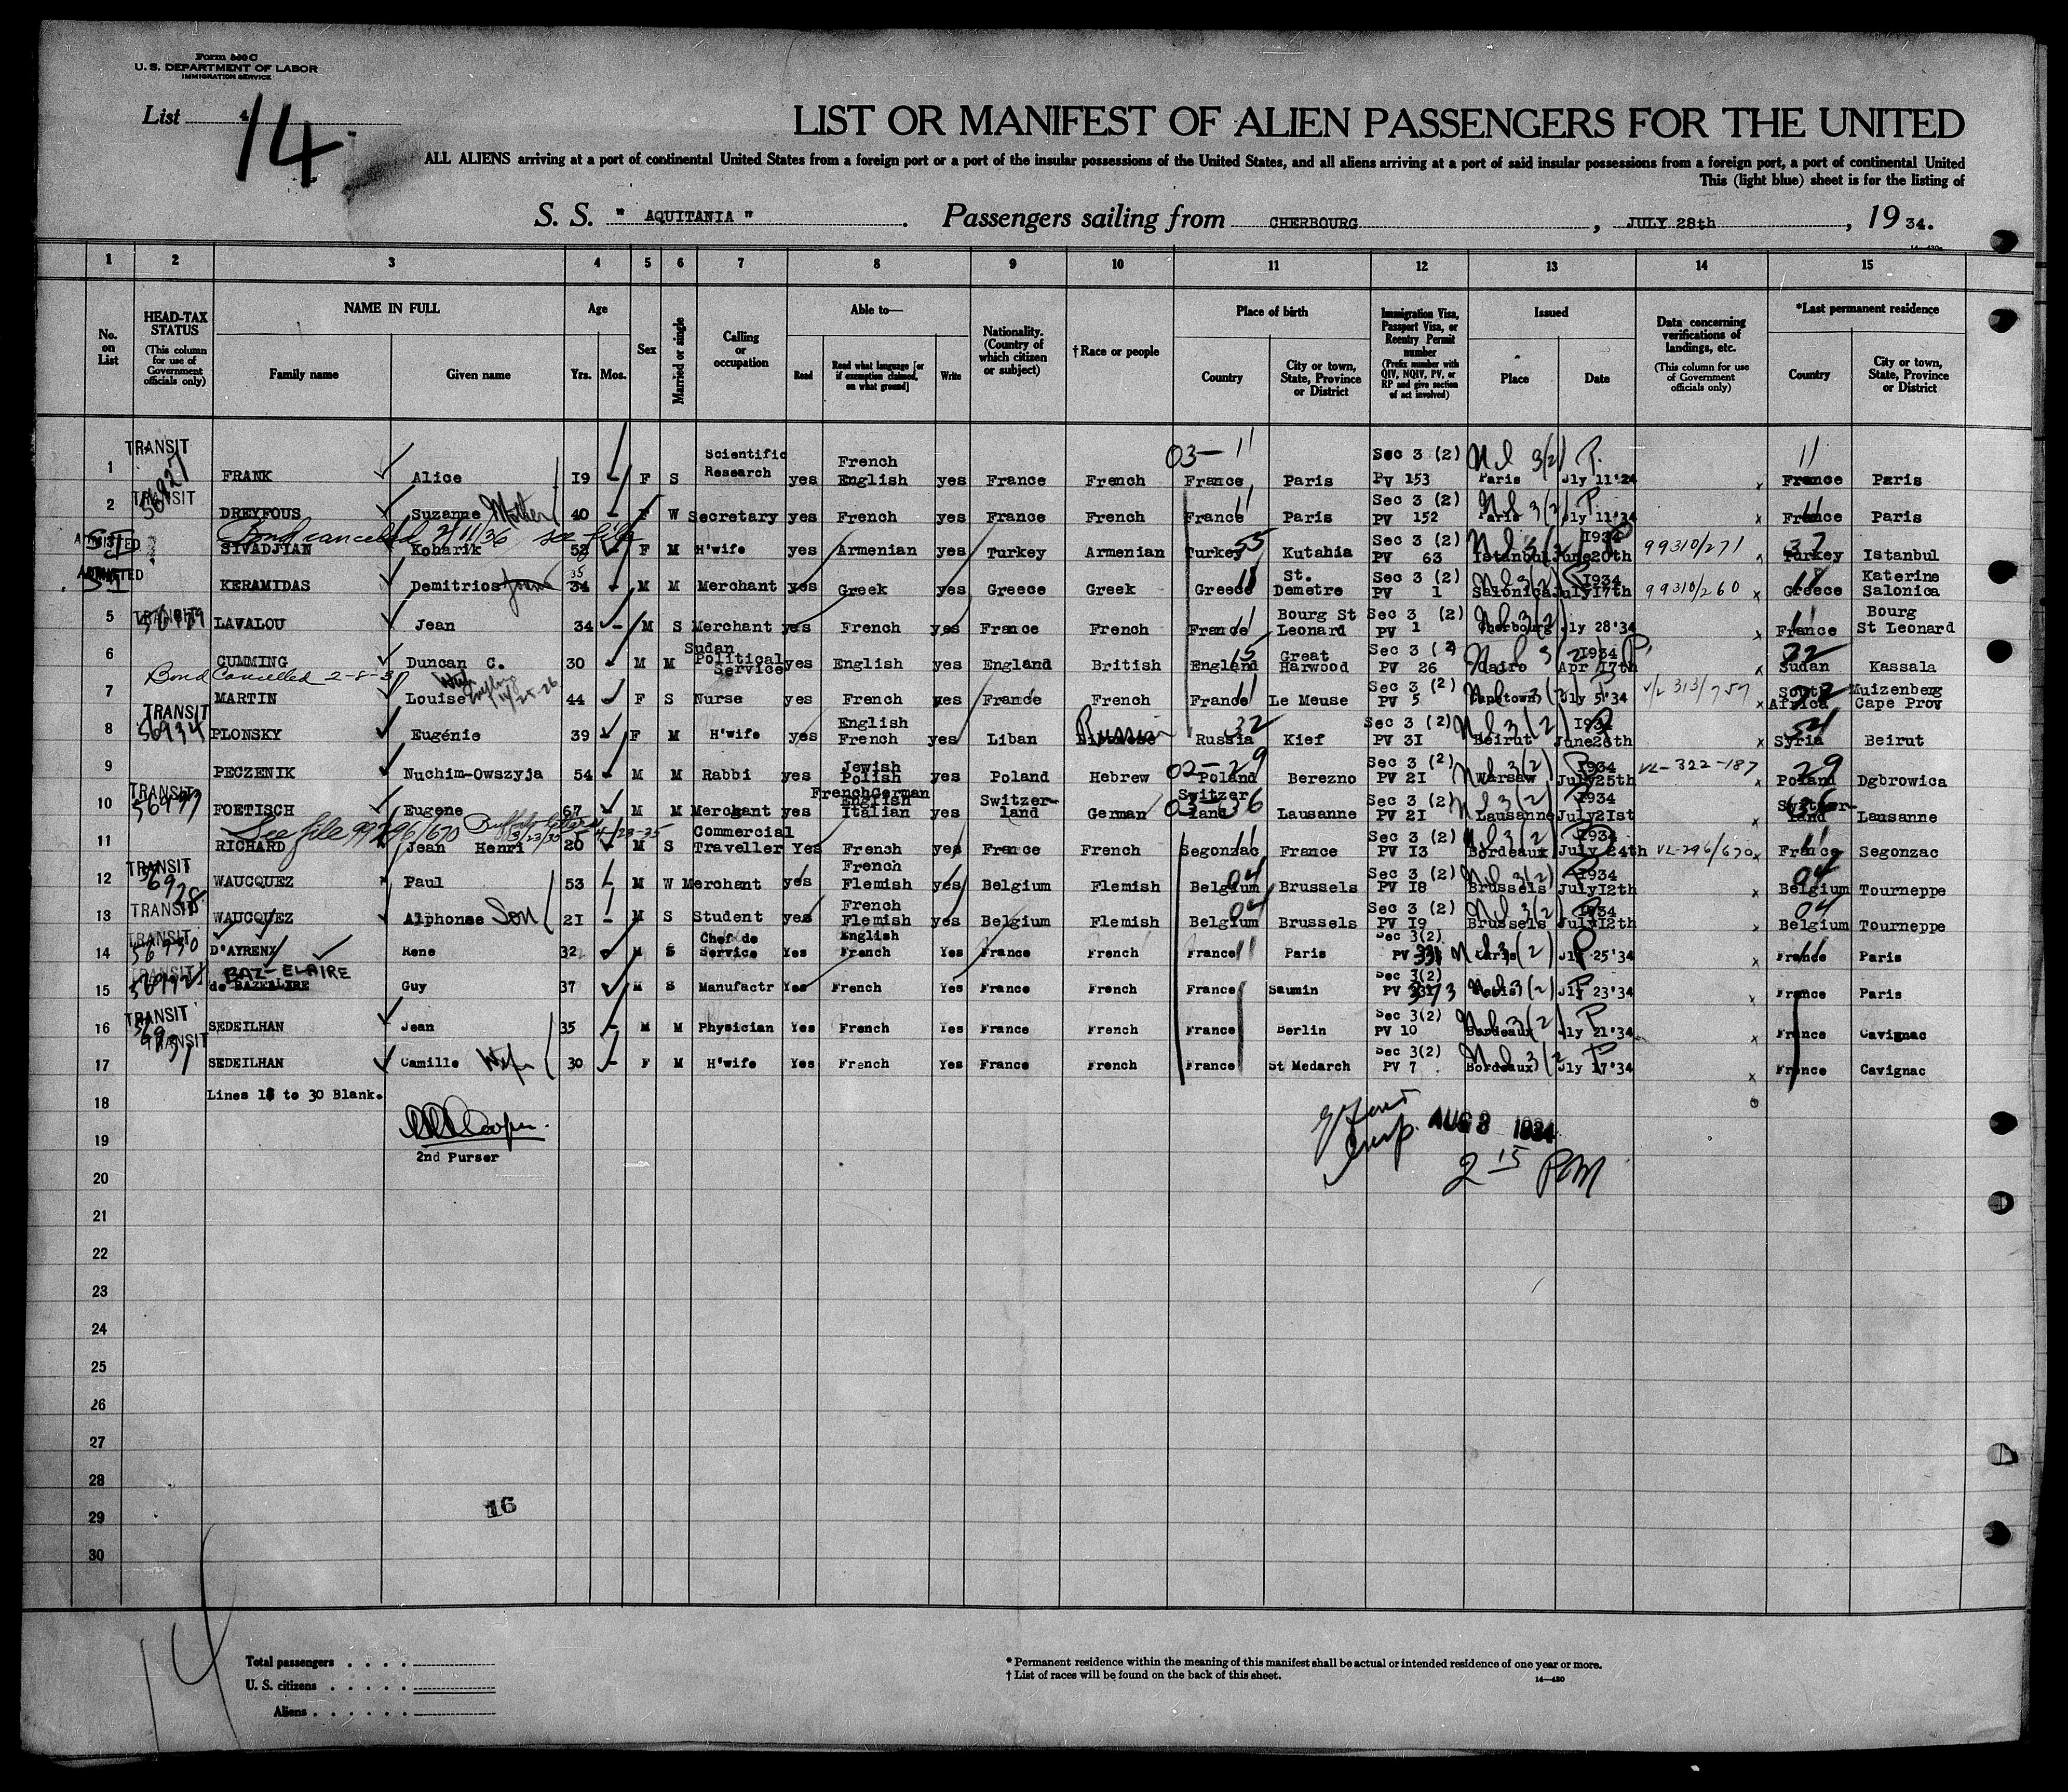 Form 500 C
U. S. DEPARTMENT OF LABOR
IMMIGRATION SERVICE
List 4
14
LIST OR MANIFEST OF ALIEN PASSENGERS FOR THE UNITED
ALL ALIENS arriving at a port of continental United States from a foreign port or a port of the insular possessions of the United States, and all aliens arriving at a port of said insular possessions from a foreign port, a port of continental United
This (light blue) sheet is for the listing of
S. S. " AQUITANIA ". Passengers sailing from CHERBOURG, JULY 28th, 19 34.
1 2 3 4 5 6 7 8 9 10 11 12 13 14 15
No. on List
HEAD-TAX STATUS (This column for use of Government officials only)
NAME IN FULL Family name Given name
Age Yrs. Mos.
Sex
Married or single
Calling or occupation
Able to— Read Read what language [or if exemption claimed, on what ground] Write
Nationality. (Country of which citizen or subject)
†Race or people
Place of birth Country City or town, State, Province or District
Immigration Visa, Passport Visa, or Reentry Permit number (Prefix number with QIV, NQIV, PV, or RP and give section of act involved)
Issued Place Date
Data concerning verifications of landings, etc. (This column for use of Government officials only)
*Last permanent residence Country City or town, State, Province or District
1 TRANSIT 56927 FRANK Alice 19 F S Scientific Research yes French English yes France French 03-11 France Paris Sec 3 (2) PV 153 Paris Jly 11'34 x 11 France Paris
2 TRANSIT DREYFOUS Suzanne Mother 40 F W Secretary yes French yes France French France Paris Sec 3 (2) PV 152 Paris Jly 11'34 x France Paris
Bond cancelled 2/11/36 see file
ADMITTED SI SIVADJIAN Koharik 52 F M H'wife yes Armenian yes Turkey Armenian Turkey 55 Kutahia Sec 3 (2) PV 63 Istanbul June20th 1934 99310/271 37 Turkey Istanbul
ADMITTED SI KERAMIDAS Demitrios 34 35 M M Merchant yes Greek yes Greece Greek Greece St. Demetre Sec 3 (2) PV 1 Salonica July17th 1934 99310/260 x Greece Katerine Salonica
5 TRANSIT LAVALOU Jean 34 M S Merchant yes French yes France French France Bourg St Leonard Sec 3 (2) PV 1 Cherbourg Jly 28'34 x France Bourg St Leonard
6 CUMMING Duncan C. 30 M M Sudan Political Service yes English yes England British England 15 Great Harwood Sec 3 (2) PV 26 Cairo Apr 17th 1934 x 22 Sudan Kassala
Bond Cancelled 2-8-3
7 MARTIN Louise 44 F S Nurse yes French yes France French France Le Meuse Sec 3 (2) PV 5 Capetown Jly 5'34 V/L 313/757 x South Africa Muizenberg Cape Prov
8 TRANSIT 56934 PLONSKY Eugénie 39 F M H'wife yes English French yes Liban Russian 32 Russia Kief Sec 3 (2) PV 31 Beirut June26th 1934 x 54 Syria Beirut
9 PECZENIK Nuchim-Owszyja 54 M M Rabbi yes Jewish Polish yes Poland Hebrew 02-29 Poland Berezno Sec 3 (2) PV 21 Warsaw July25th 1934 VL-322-187 29 Poland Dgbrowica
10 TRANSIT 56977 FOETISCH Eugene 67 M M Merchant yes French German English Italian yes Switzer-land German 03-036 Switzer land Lausanne Sec 3 (2) PV 21 Lausanne July21st 1934 x Switzer-land Lausanne
See file 99296/670 4-28-35
11 RICHARD Jean Henri 20 M S Commercial Traveller Yes French yes France French Segonzac France Sec 3 (2) PV 13 Bordeaux July 24th 1934 VL-296/670 x France Segonzac
12 TRANSIT 56928 WAUCQUEZ Paul 53 M W Merchant yes French Flemish yes Belgium Flemish 04 Belgium Brussels Sec 3 (2) PV 18 Brussels July12th 1934 x 04 Belgium Tourneppe
13 TRANSIT WAUCQUEZ Alphonse Son 21 M S Student yes French Flemish yes Belgium Flemish 04 Belgium Brussels Sec 3 (2) PV 19 Brussels July12th 1934 x 04 Belgium Tourneppe
14 TRANSIT 56930 D'AYRENX Rene 32 M S Chef de Service Yes English French Yes France French France 11 Paris Sec 3(2) PV Paris Jly 25'34 x 11 France Paris
15 TRANSIT BAZ-ELAIRE de BAZELAIRE Guy 37 M S Manufactr Yes French Yes France French France Saumin Sec 3(2) PV 373 Paris Jly 23'34 x France Paris
16 TRANSIT SEDEILHAN Jean 35 M M Physician Yes French Yes France French France Berlin Sec 3(2) PV 10 Bordeaux Jly 21'34 x France Cavignac
17 TRANSIT 56931 SEDEILHAN Camille Wife 30 F M H'wife Yes French Yes France French France St Medarch Sec 3(2) PV 7 Bordeaux Jly 17'34 x France Cavignac
18 Lines 18 to 30 Blank.
AUG 3 1934
19
2nd Purser
2 15 PM
20
21
22
23
24
25
26
27
28
16
29
30
14
Total passengers
U. S. citizens
Aliens
* Permanent residence within the meaning of this manifest shall be actual or intended residence of one year or more.
† List of races will be found on the back of this sheet.
14—430